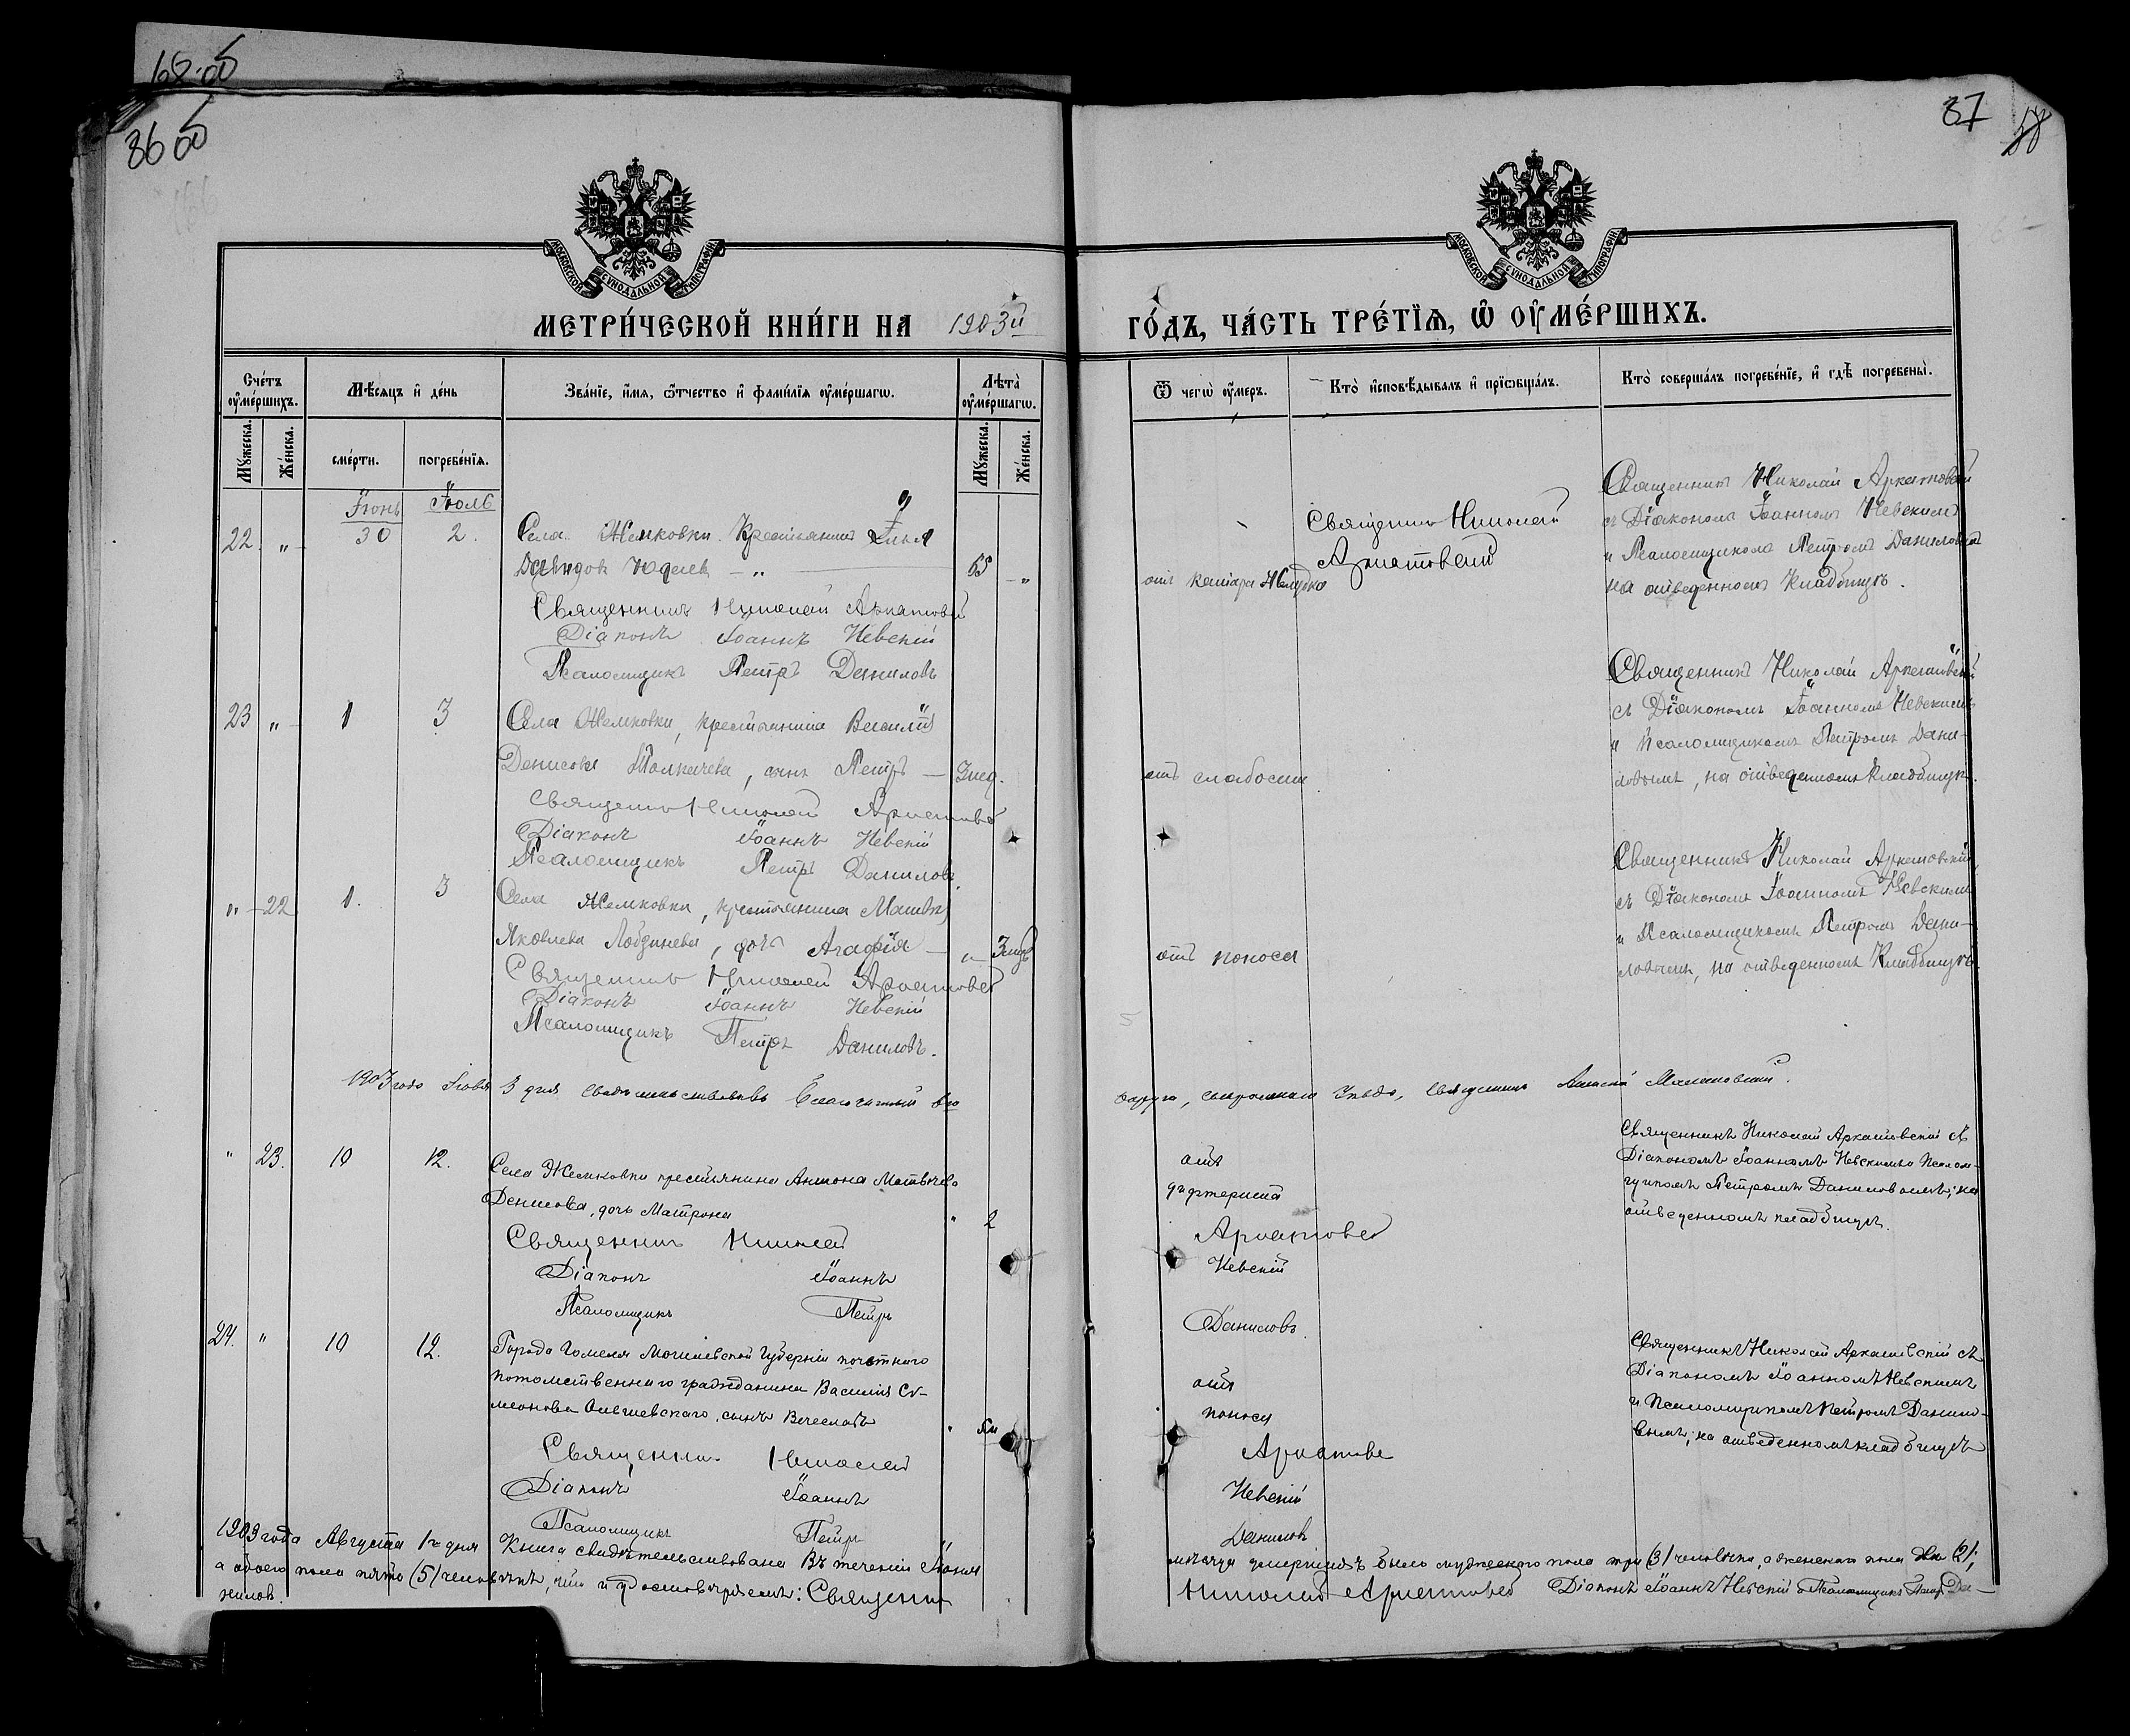 68 об
86 об
87
МОСКОВСКОЙ СѴНОДАЛЬНОЙ ТИПОГРАФІИ
МОСКОВСКОЙ СѴНОДАЛЬНОЙ ТИПОГРАФІИ
МЕТРИ́ЧЕСКОЙ КНИ́ГИ НА 1903й ГО́ДЪ, ЧА́СТЬ ТРЕ́ТІѦ, Ѡ ОУМЕ́РШИХЪ.
Сче́тъ оуме́ршихъ.
Мѣ́сяцъ и де́нь
Зва́ніе, и́мя, ѻ́тчество и фами́лія оуме́ршагѡ.
Лѣта̀ оуме́ршагѡ.
Ѿ чегѡ̀ оу́меръ.
Кто̀ исповѣ́дывалъ и пріѡбща́лъ.
Кто̀ соверша́лъ погребе́ніе, и гдѣ̀ погребены̀.
Му́жеска.
Же́нска.
сме́рти.
погребе́нія.
Му́жеска.
Же́нска.
Іюнь Іюль
22. " 30 2.
Села Жемковки Крестьянинъ Илья
Давидов — " — 65 "
Священникъ Николай Аркатовскій
Діаконъ Іоаннъ Невскій
Псаломщикъ Петръ Даниловъ
отъ катара желудка
Священникъ Николай
Аркатовскій
Священникъ Николай Аркатовскій
съ Діакономъ Іоанномъ Невскимъ
и Псаломщикомъ Петромъ Даниловымъ
на отведенномъ кладбищѣ.
23 " 1 3
Села Жемковки, крестьянина Василія
Денисова Толкачева, сынъ Петръ — 3 нед.
Священникъ Николай Аркатовскій
Діаконъ Іоаннъ Невскій
Псаломщикъ Петръ Даниловъ.
отъ слабости
Священникъ Николай Аркатовскій
съ Діакономъ Іоанномъ Невскимъ
и Псаломщикомъ Петромъ Дани-
ловымъ, на отведенномъ кладбищѣ.
" 22 1. 3
Села Жемковки, крестьянина Матвѣя
Яковлева, дочь Агафія — "
Священникъ Николай Аркатовскій
Діаконъ Іоаннъ Невскій
Псаломщикъ Петръ Даниловъ.
отъ поноса
Священникъ Николай Аркатовскій
съ Діакономъ Іоанномъ Невскимъ
и Псаломщикомъ Петромъ Дани-
ловымъ, на отведенномъ кладбищѣ.
1903 года 3 дня свидѣтельствовалъ Благочинный
округа, Сызранскаго уѣзда, Священникъ
" 23. 10 12.
Села Жемковки крестьянина Антона Матвѣева
Денисова, дочь Матрона " 2
Священникъ Николай Аркатовскій
Діаконъ Іоаннъ Невскій
Псаломщикъ Петръ Даниловъ.
отъ
дефтерита
Священникъ Николай Аркатовскій съ
Діакономъ Іоанномъ Невскимъ и Псалом-
щикомъ Петромъ Даниловымъ; на
отведенномъ кладбищѣ.
24. " 10 12.
Города Гомеля Могилевской Губерніи почотнаго
потомственнаго гражданина Василія Си-
меонова, сынъ Вечеславъ
Священник Николай Аркатовскій
Діаконъ Іоаннъ Невскій
Псаломщикъ Петръ Даниловъ
отъ
поноса
Священникъ Николай Аркатовскій съ
Діакономъ Іоанномъ Невскимъ
и Псаломщикомъ Петромъ Данило-
вымъ; на отведенномъ кладбищѣ
1903 года Августа 1го дня Книга свидѣтельствована Въ теченіи Іюля
мѣсяца умершихъ было мужескаго пола три (3) человѣка, а женскаго пола два (2);
а обоего пола пять (5) человѣкъ, что и удостовѣряемъ: Священникъ
Николай Аркатовскій Діаконъ Іоаннъ Невскій Псаломщикъ Петръ Да-
ниловъ.